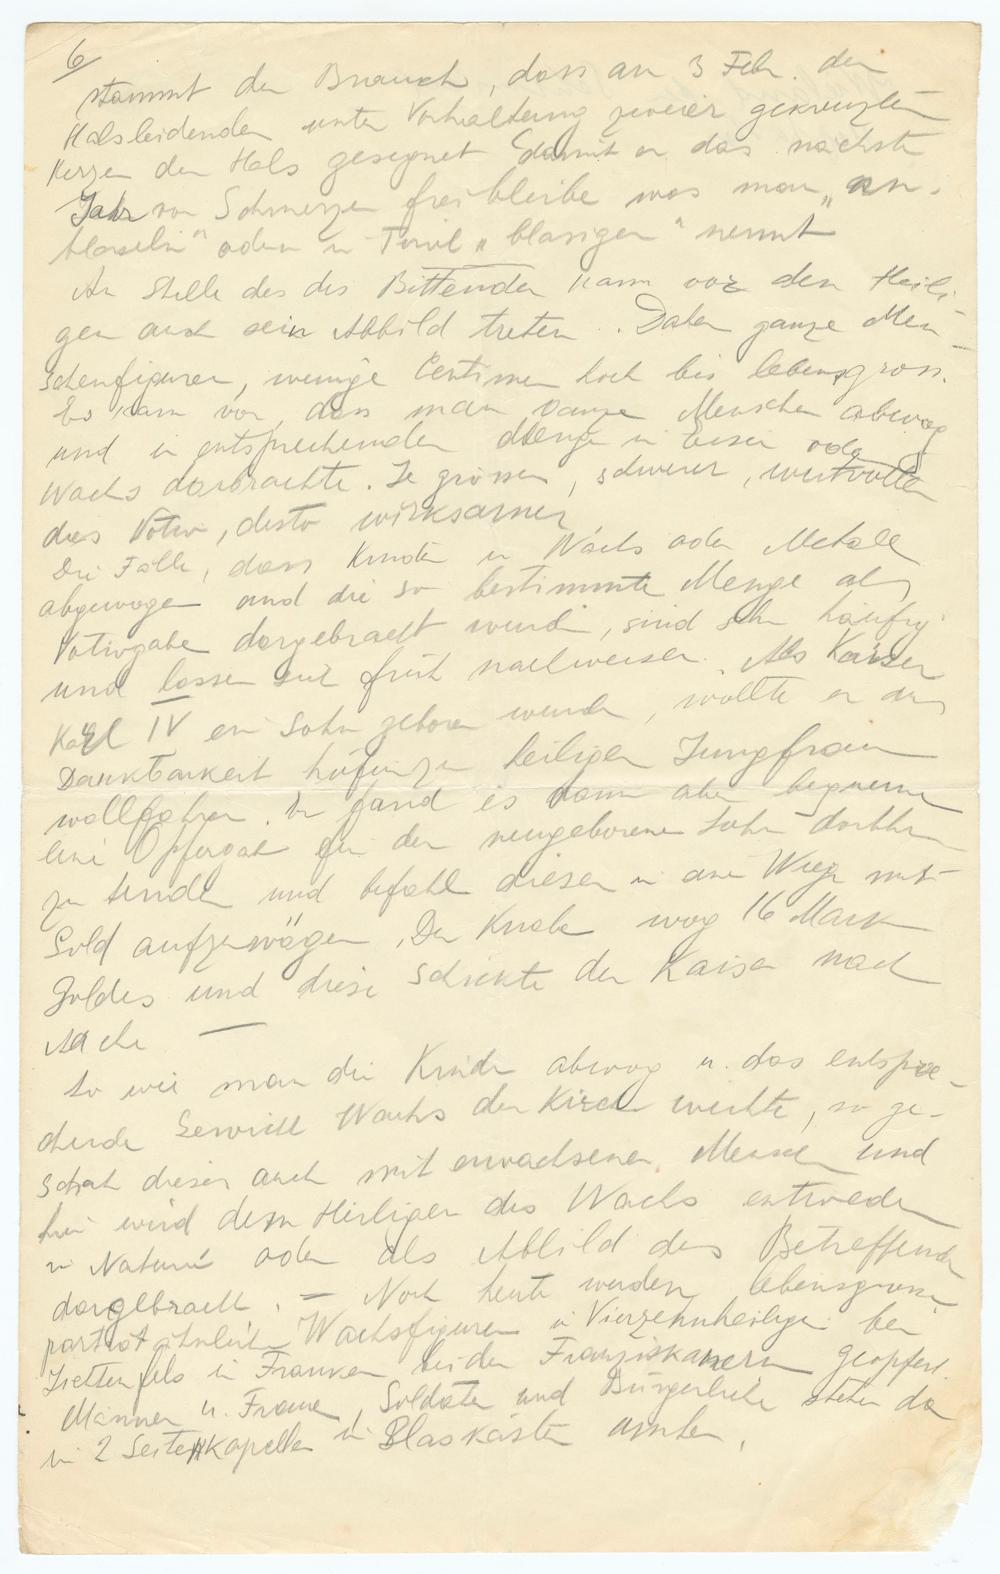 6
stammt der Brauch, dass am 3 Febr. den
Halsleidenden unter Vorhaltung zweier gekreuzten
Kerzen der Hals gesegnet damit er das nächste
Jahr von Schmerzen frei bleibe was man „an-
blaseln" oder in Tirol „blasigen" nennt
An Stelle des des Bittenden kann vor den Heili-
gen auch sein Abbild treten. Daher ganze Men-
schenfiguren, wenige Centimer hoch bis lebensgross.
Es kam vor, dass man ganze Menschen abwog
und in entsprechenden Menge in Eisen oder
Wachs darbrachte. Je grösser, schwerer, wertvoller
das Votiv, desto wirksamer
Die Fälle, dass Kinder in Wachs oder Metall
abgewogen und die so bestimmte Menge als
Votivgabe dargebracht wurde, sind sehr häufig
und lassen sich früh nachweisen. Als Kaiser
Karl IV ein Sohn geboren wurde, wollte er aus
Dankbarkeit zur heiligen Jungfrau
wallfahren. Er fand es dann aber bequemer
eine Opfergabe für den neugeborenen Sohn dorthin
zu senden und befahl diesen in einer Wiege mit
Gold aufzuwägen. Der Knabe wog 16 Mark
Goldes und diese schickte der Kaiser nach
Aachen —
So wie man die Kinder abwog u. das entspre-
chende Gewicht Wachs der Kirche weihte, so ge-
schah dieses auch mit erwachsenen Menschen und
hier wird dem Heiligen das Wachs entweder
in Natura oder als Abbild des Betreffenden
dargebracht. — Noch heute werden lebensgrosse,
porträtähnliche Wachsfiguren in Vierzehnheiligen bei
in Franken bei den Franziskanern geopfert.
Männer u. Frauen, Soldaten und Bürgerliche stehen da
in 2 Seitenkapellen in Glaskästen umher.